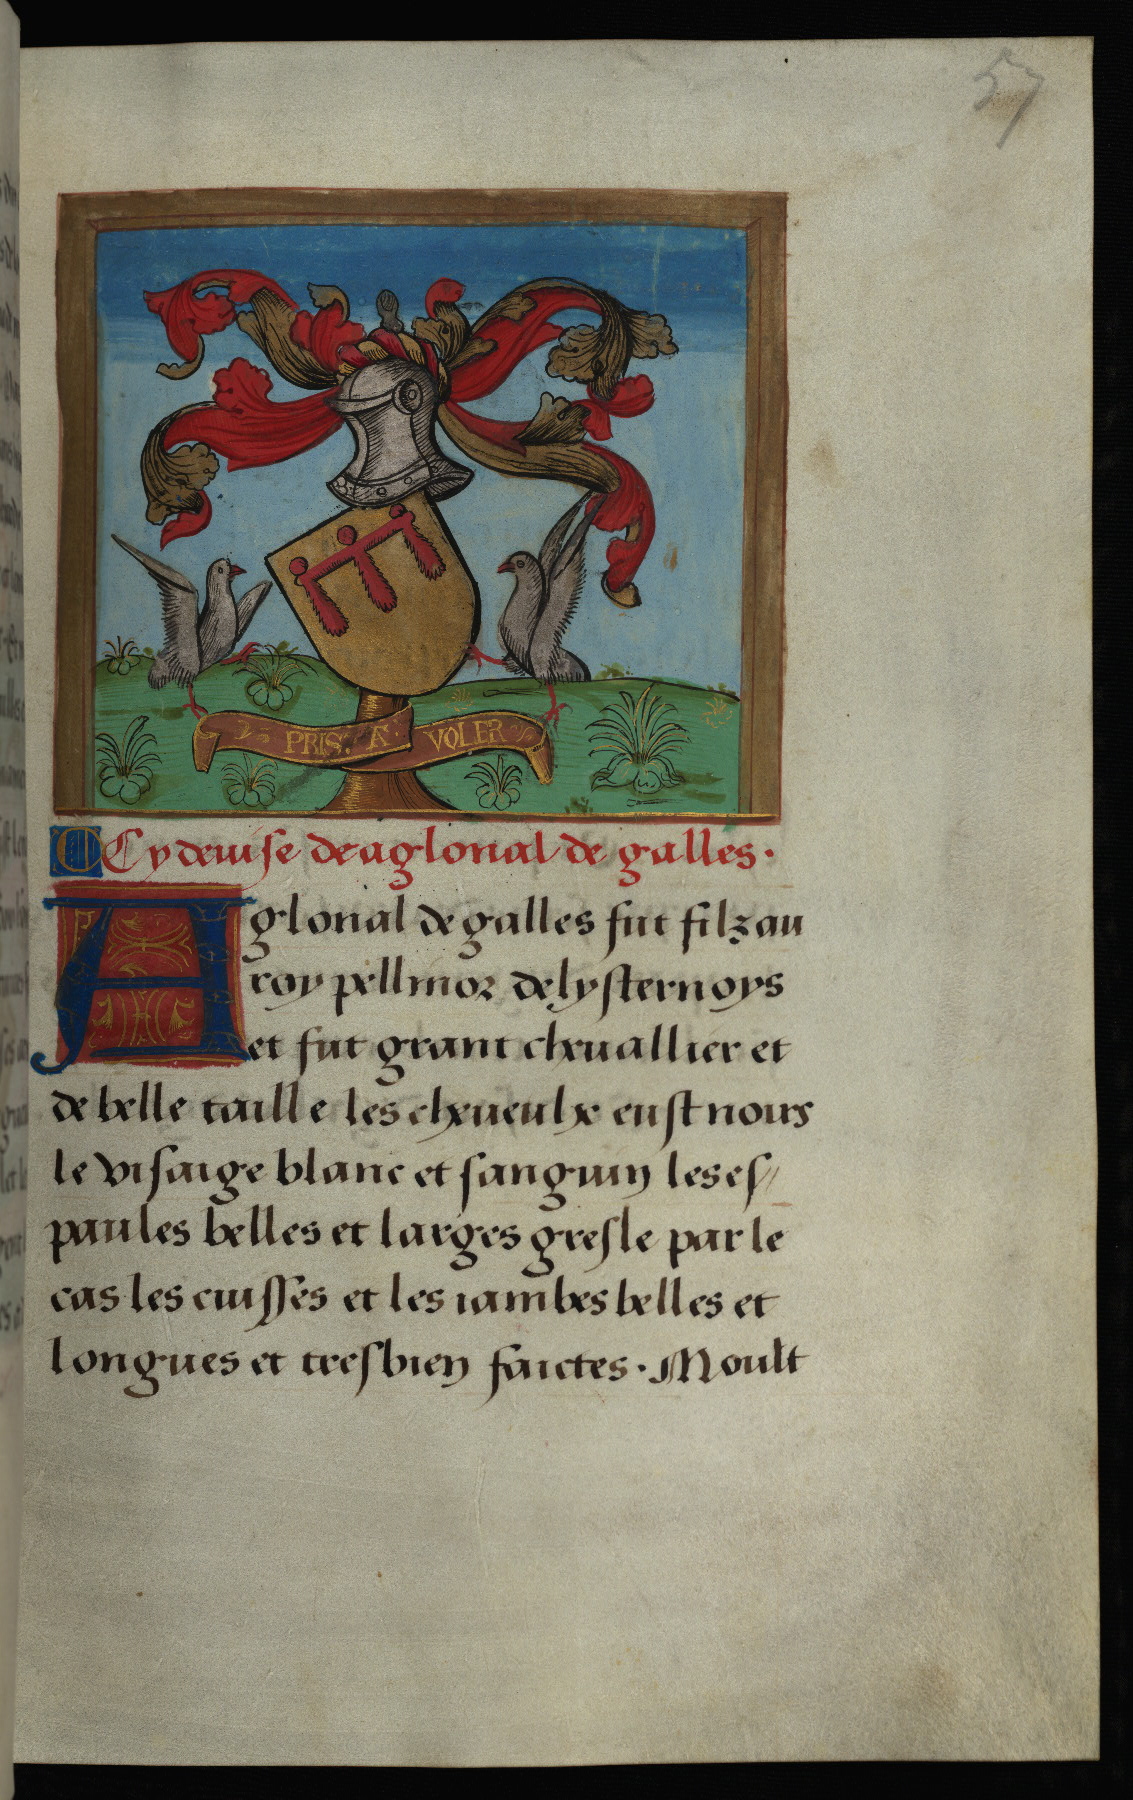 57
PRIS. A. VOLER
C Cy deuise de aglonal de galles.
Aglonal de galles fut filz au
roy pellinor de lysternoys
et fut grant cheuallier et
de belle taille les cheueulx eust noirs
le visaige blanc et sanguin les es//
paules belles et larges gresle par le
cas les cuisses et les iambes belles et
longues et tresbien faictes. Moult